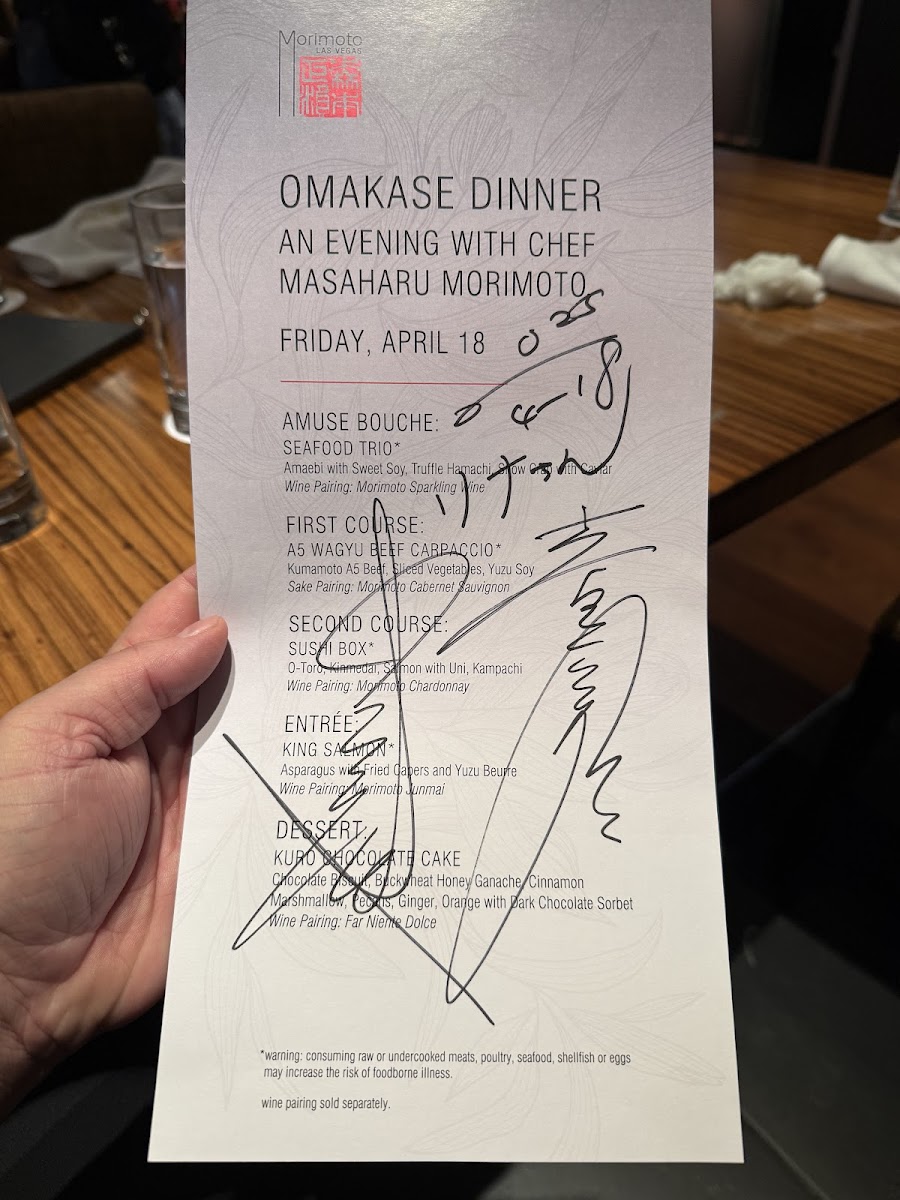 Morimoto
LAS VEGAS
森本
正治
OMAKASE DINNER
AN EVENING WITH CHEF
MASAHARU MORIMOTO
FRIDAY, APRIL 18
025
4-18
AMUSE BOUCHE:
SEAFOOD TRIO*
Amaebi with Sweet Soy, Truffle Hamachi, Snow Crab with Caviar
Wine Pairing: Morimoto Sparkling Wine
FIRST COURSE:
A5 WAGYU BEEF CARPACCIO*
Kumamoto A5 Beef, Sliced Vegetables, Yuzu Soy
Sake Pairing: Morimoto Cabernet Sauvignon
SECOND COURSE:
SUSHI BOX*
O-Toro, Kinmedai, Salmon with Uni, Kampachi
Wine Pairing: Morimoto Chardonnay
ENTRÉE:
KING SALMON*
Asparagus with Fried Capers and Yuzu Beurre
Wine Pairing: Morimoto Junmai
DESSERT:
KURO CHOCOLATE CAKE
Chocolate Biscuit, Buckwheat Honey Ganache, Cinnamon
Marshmallow, Pecans, Ginger, Orange with Dark Chocolate Sorbet
Wine Pairing: Far Niente Dolce
*warning: consuming raw or undercooked meats, poultry, seafood, shellfish or eggs
may increase the risk of foodborne illness.
wine pairing sold separately.